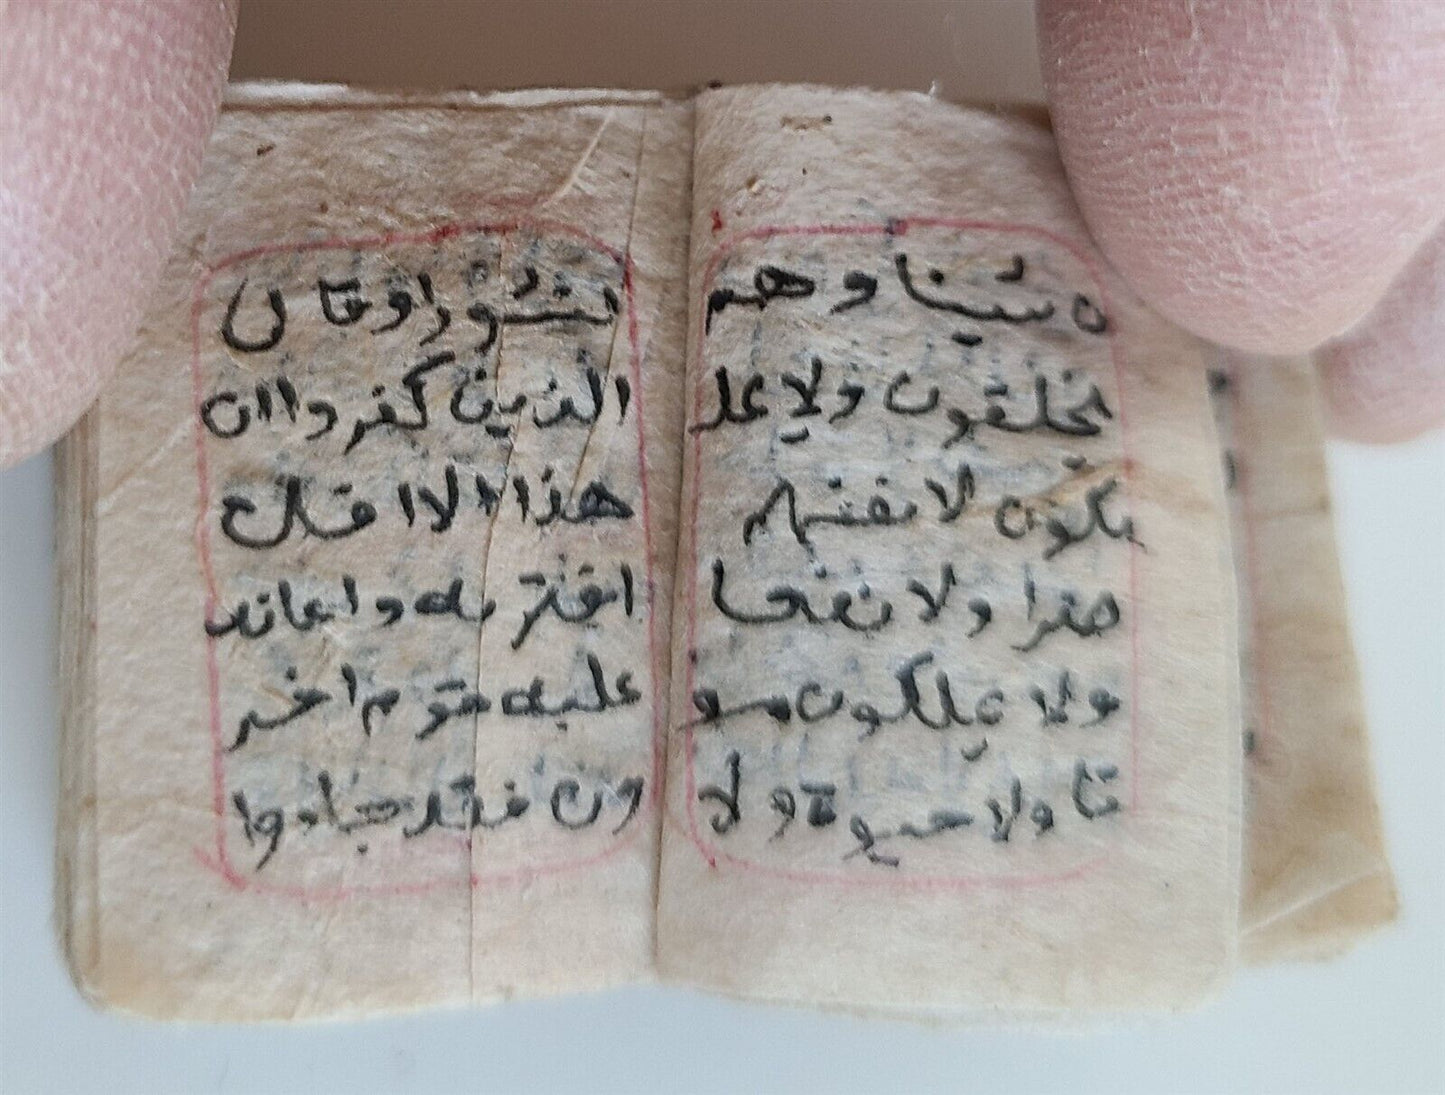 ن شيئا وهم
يخلقون ولا يمل
كون لا نفسهم
ضرا ولا نفعا
ولا يملكون مو
تا ولا حيوة ولا
نشورا وقال
الذين كفروا ان
هذا الا افك
افتريه واعانه
عليه قوم اخر
ون فقد جاوا